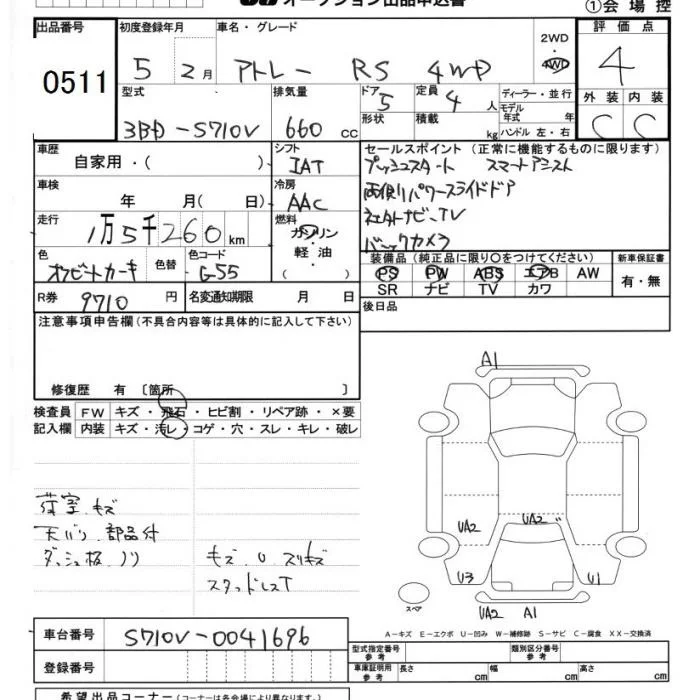 オークション出品申込書
①会場控
出品番号 初度登録年月 車名・グレード 評価点
0511 5 2月 アトレー RS 4WD 2WD 4WD 4
型式 排気量 ドア 定員 ディーラー・並行 外装 内装
3BD-S710V 660 cc 5 4人 モデル年式 年 C C
形状 積載 kg ハンドル 左・右
車歴 シフト セールスポイント (正常に機能するものに限ります)
自家用・( ) IAT プッシュスタート スマートアシスト
車検 冷房 両側パワースライドドア
年 月( 日) AAC 社外ナビ・TV
走行 燃料 バックカメラ
1万5千260km ガソリン
軽油
( )
色 色替 色コード 装備品 (純正品に限り○をつけてください) 新車保証書
オフビートカーキ G-55 PS PW ABS エアB AW 有・無
SR ナビ TV カワ
R券 9710円 名変通知期限 月 日 後日品
注意事項申告欄 (不具合内容等は具体的に記入して下さい)
修復歴 有 〔箇所 〕
検査員 FW キズ・飛石・ヒビ割・リペア跡・×要
記入欄 内装 キズ・汚レ・コゲ・穴・スレ・キレ・破レ
荷室.キズ
天バリ.部品付
ダッシュ板.ノリ キズ.U.スリキズ
スタッドレスT
A1
UA2 UA2
U3 U1
スペア UA2 A1
A-キズ E-エクボ U-凹み W-補修跡 S-サビ C-腐食 XX-交換済
車台番号 S710V-0041696
型式指定番号 参考 類別区分番号 参考
登録番号 車庫証明用 参考 長さ cm 幅 cm 高さ cm
希望出品コーナー (コーナーは各会場により異なります)